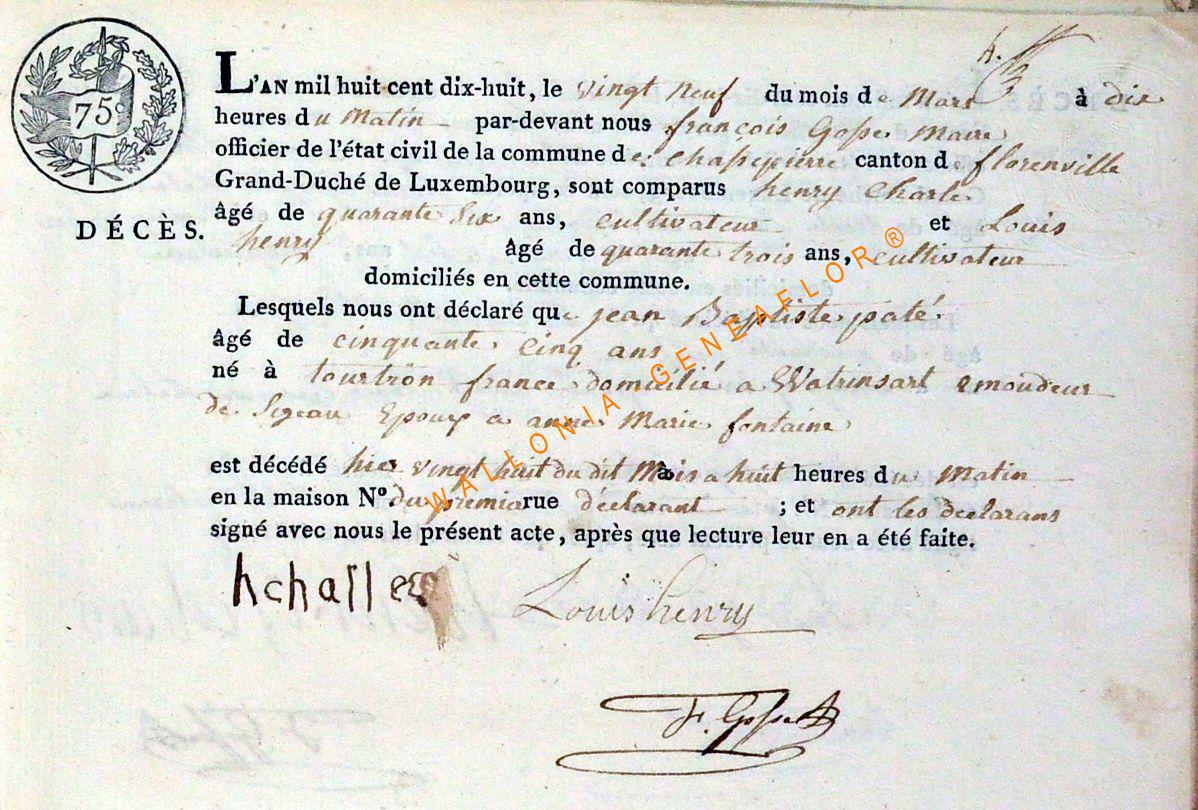 75 c
L'AN mil huit cent dix-huit, le vingt neuf du mois de Mars à dix
heures du Matin par-devant nous françois Gosse Maire
officier de l'état civil de la commune de chassepierre canton d florenville
Grand-Duché de Luxembourg, sont comparus henry Charle
DÉCÈS.
âgé de quarante Six ans, cultivateur et Louis
henry âgé de quarante trois ans, cultivateur
domiciliés en cette commune.
Lesquels nous ont déclaré que jean Baptiste paté
âgé de cinquante cinq ans
né à tourtron france domicilié a Watrinsart emoudeur
de Sizeau Epoux a anne Marie fontaine
est décédé hier vingt huit du dit Mois a huit heures du Matin
en la maison N° du premier rue déclarant ; et ont les déclarans
signé avec nous le présent acte, après que lecture leur en a été faite.
Louis henry
F. Gosse
WALLONIA GENEAFLOR ®